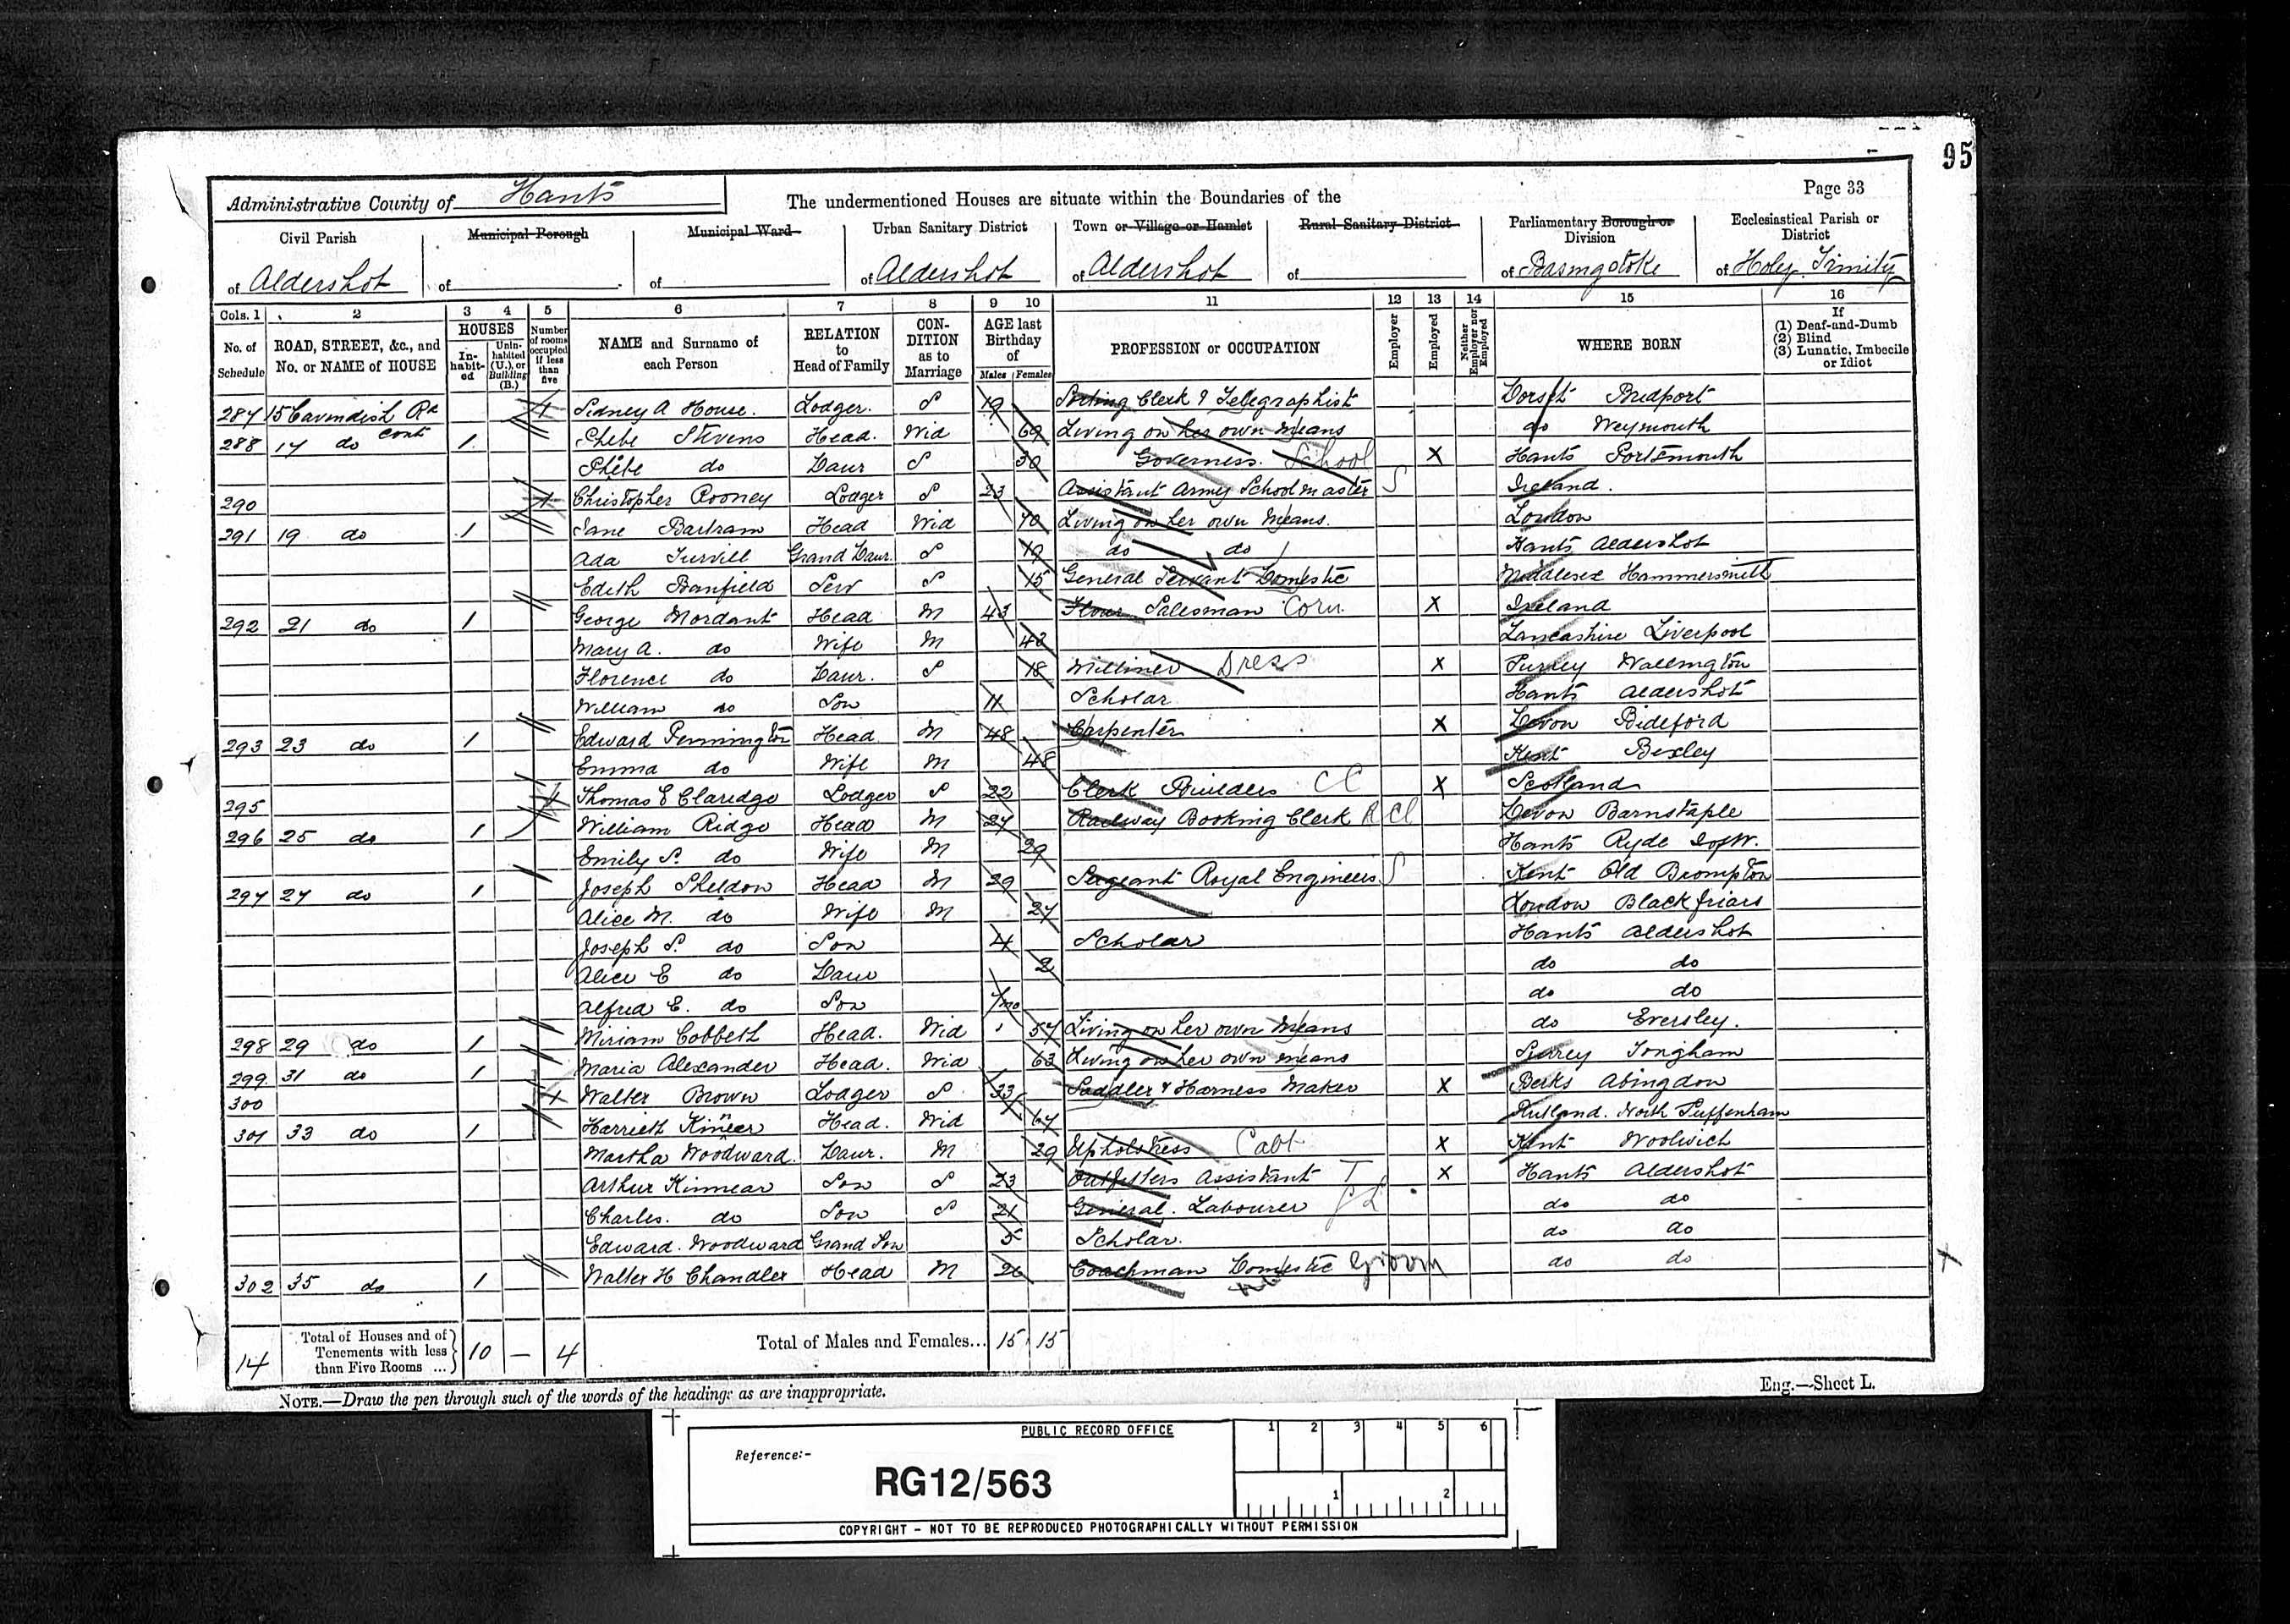 95
Page 33
Administrative County of Hants
The undermentioned Houses are situate within the Boundaries of the
Civil Parish of Aldershot
Municipal Borough of
Municipal Ward of
Urban Sanitary District of Aldershot
Town or Village or Hamlet of Aldershot
Rural Sanitary District of
Parliamentary Borough or Division of Basingstoke
Ecclesiastical Parish or District of Holy Trinity
Cols. 1 2 3 4 5 6 7 8 9 10 11 12 13 14 15 16
No. of Schedule
ROAD, STREET, &c., and No. or NAME of HOUSE
HOUSES
In-habit-ed
Unin-habited (U.), or Building (B.)
Number of rooms occupied if less than five
NAME and Surname of each Person
RELATION to Head of Family
CON-DITION as to Marriage
AGE last Birthday of
Males Females
PROFESSION or OCCUPATION
Employer
Employed
Neither Employer nor Employed
WHERE BORN
If (1) Deaf-and-Dumb (2) Blind (3) Lunatic, Imbecile or Idiot
287 15 Cavendish Rd cont Sidney A House. Lodger. S 19 Sorting Clerk & Telegraphist Dorset Bridport
288 17 do 1 Phebe Stevens Head. Wid 69 Living on her own Means do Weymouth
Phebe do Daur S 30 Governess. School X Hants Portsmouth
290 Christopher Rooney Lodger S 23 Assistant Army Schoolmaster S Ireland.
291 19 do 1 Jane Bartram Head Wid 70 Living on her own Means. London
Ada Turvill Grand Daur. S 19 do do Hants Aldershot
Edith Banfield Serv S 15 General Servant Domestic Middlesex Hammersmith
292 21 do 1 George Mordant Head M 43 Flour Salesman Corn X Ireland
Mary A. do Wife M 42 Lancashire Liverpool
Florence do Daur. S 18 Milliner Dress X Surrey Wallington
William do Son 11 Scholar Hants Aldershot
293 23 do 1 Edward Pennington Head M 48 Carpenter X Devon Bideford
Emma do Wife M 48 Kent Bexley
295 Thomas E Claridge Lodger S 22 Clerk Builders CC X Scotland
296 25 do 1 William Ridge Head M 27 Railway Booking Clerk R Cl Devon Barnstaple
Emily S. do Wife M 29 Hants Ryde I of W.
297 27 do 1 Joseph Sheldon Head M 29 Sergeant Royal Engineers S Kent Old Brompton
Alice M. do Wife M 27 London Blackfriars
Joseph S. do Son 4 Scholar Hants Aldershot
Alice E do Daur 2 do do
Alfred E. do Son 7mo do do
298 29 do 1 Miriam Cobbeth Head. Wid 57 Living on her own Means do Eversley.
299 31 do 1 Maria Alexander Head. Wid 63 Living on her own means Surrey Tongham
300 Walter Brown Lodger S 33 Saddler & Harness Maker X Berks Abingdon
301 33 do 1 Harrieth Kinnear Head. Wid 67 Rutland. North Luffenham
Martha Woodward. Daur. M 29 Upholstress Cabt X Kent Woolwich
Arthur Kinnear Son S 23 Outfitters Assistant T X Hants Aldershot
Charles. do Son S 21 General. Labourer GL do do
Edward. Woodward Grand Son 5 Scholar. do do
302 35 do 1 Walter H Chandler Head M 26 Coachman Domestic Groom do do
14 Total of Houses and of Tenements with less than Five Rooms ... 10 — 4 Total of Males and Females... 15 15
NOTE.—Draw the pen through such of the words of the headings as are inappropriate.
Eng.—Sheet L.
PUBLIC RECORD OFFICE
1 2 3 4 5 6
Reference:-
RG12/563
1 2
COPYRIGHT - NOT TO BE REPRODUCED PHOTOGRAPHICALLY WITHOUT PERMISSION